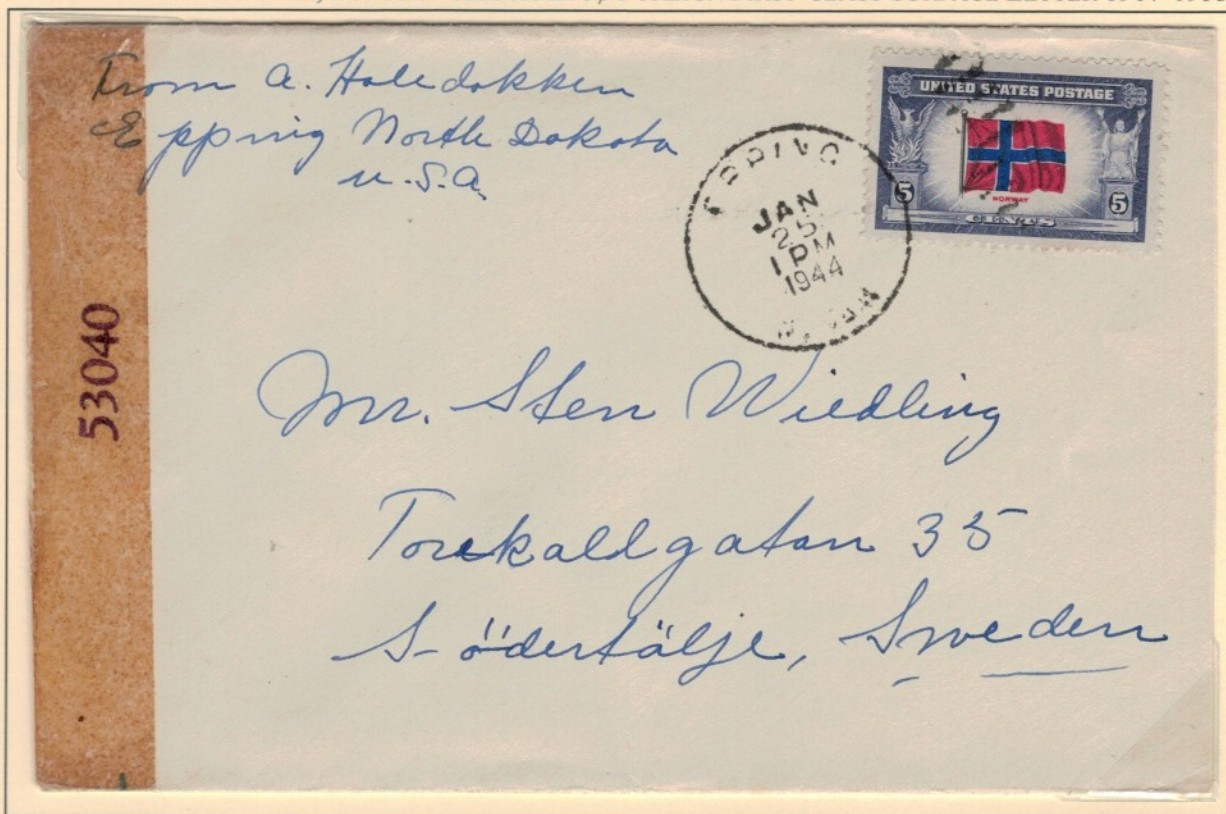 From A. Holedokken
Epping North Dakota
U.S.A.
UNITED STATES POSTAGE
5
NORWAY
5
CENTS
EPPING
JAN
25
1 PM
1944
N. DAK
53040
Mr. Sten Wiedling
Torekallgatan 35
Södertälje, Sweden